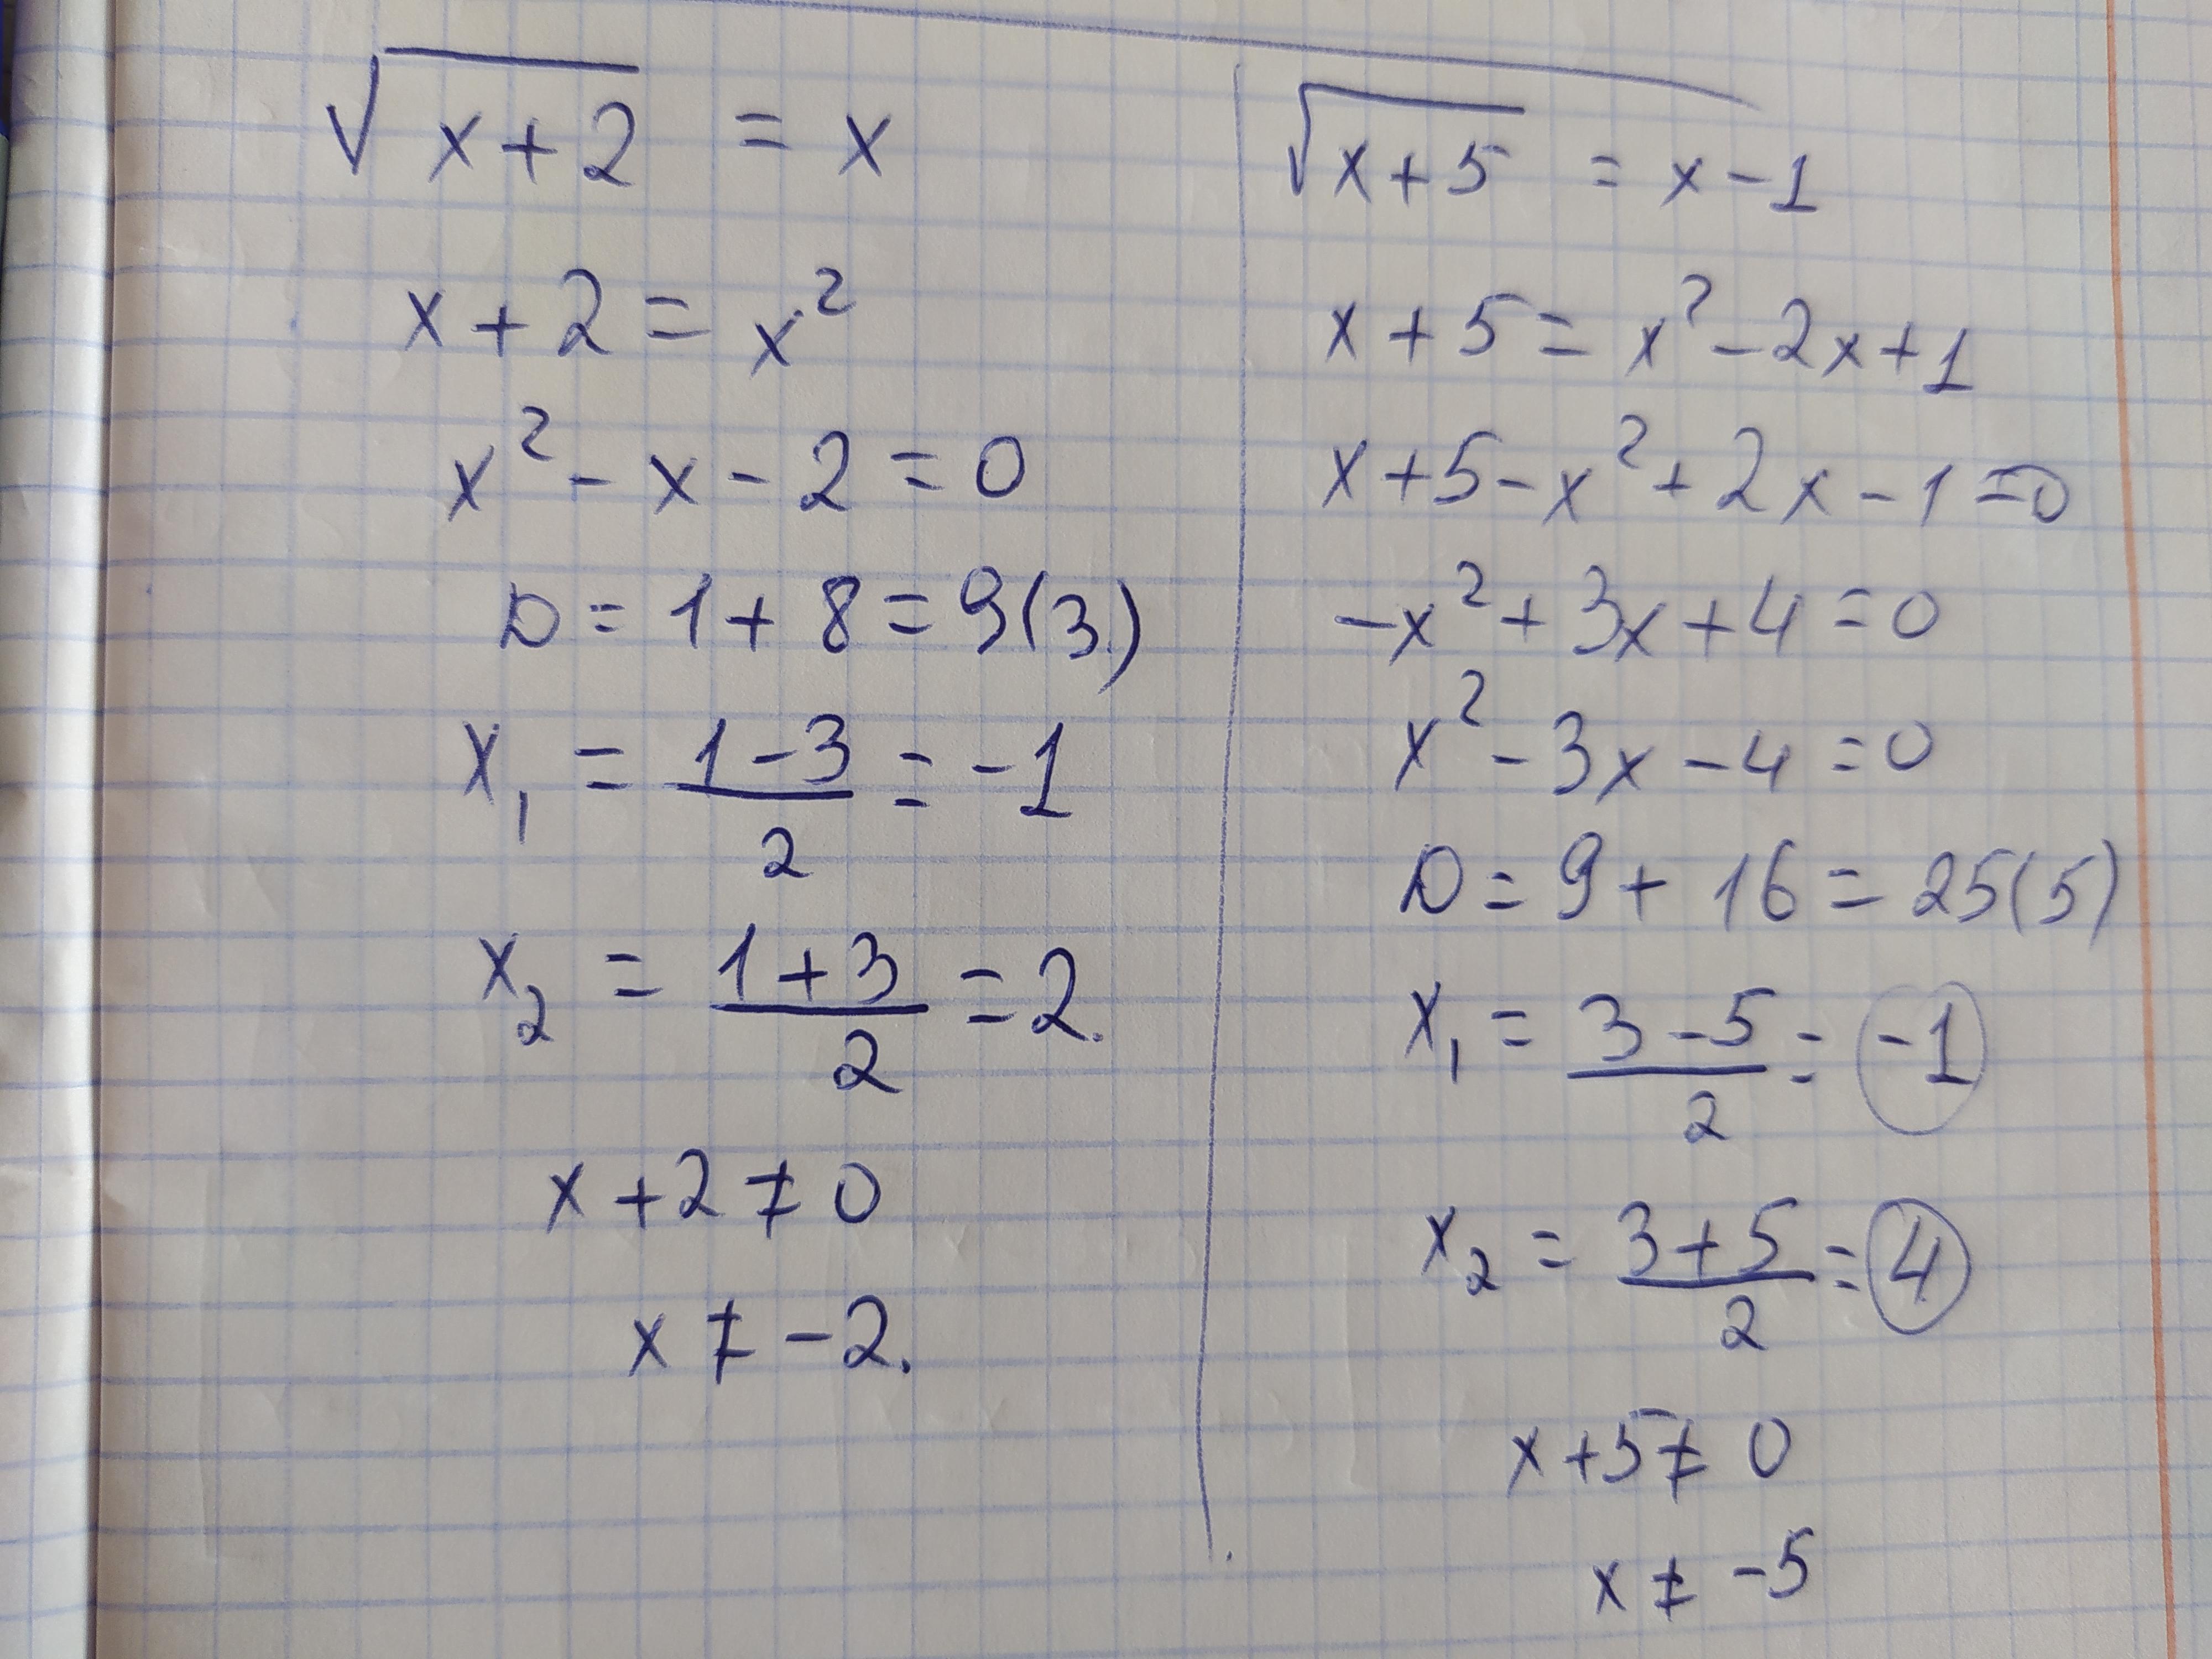 √x+2 = x
x+2=x²
x²-x-2=0
D=1+8=9(3.)
x₁ = 1-3/2 = -1
x₂ = 1+3/2 = 2.
x+2≠0
x≠-2.
√x+5 = x-1
x+5=x²-2x+1
x+5-x²+2x-1=0
-x²+3x+4=0
x²-3x-4=0
D=9+16=25(5)
x₁ = 3-5/2 = -1
x₂ = 3+5/2 = 4
x+5≠0
x≠-5